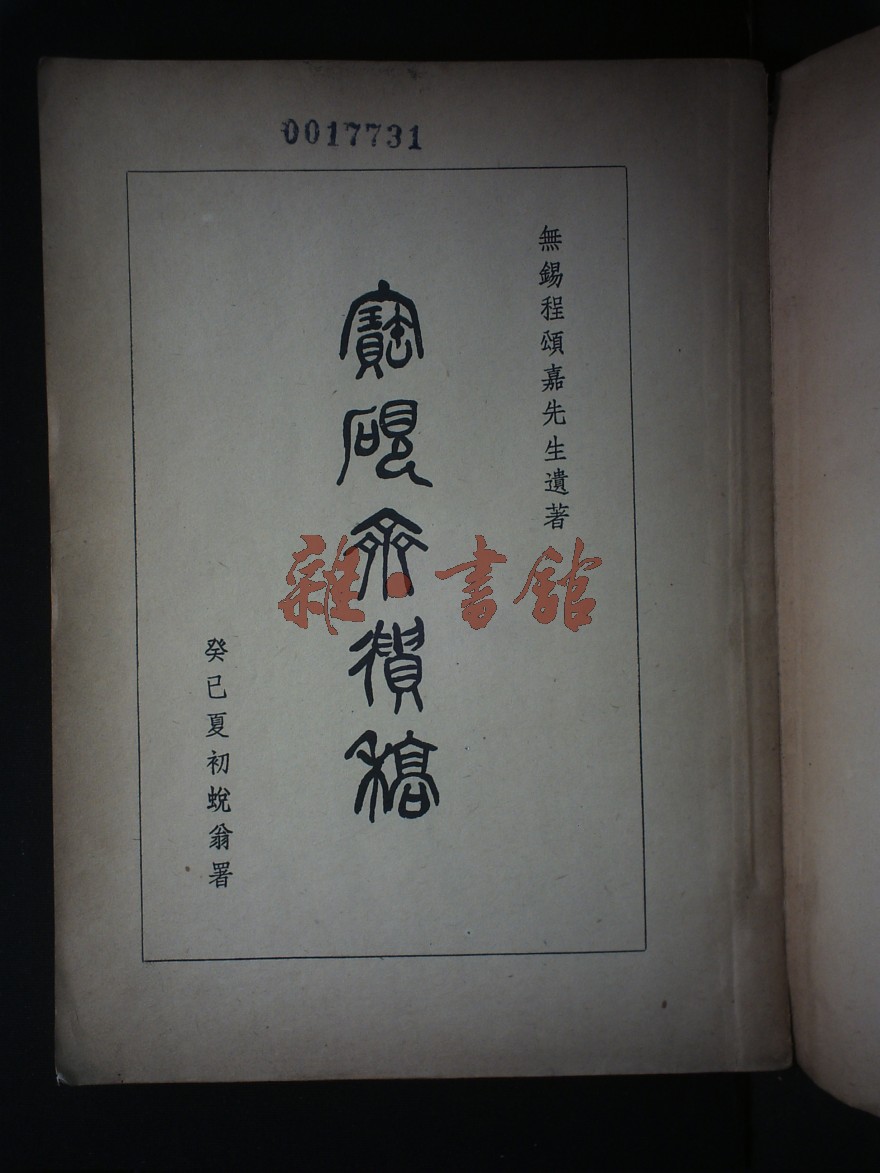 0017731
無錫程頌嘉先生遺著
寶硯齋積稿
癸巳夏初蛻翁署
雜·書館